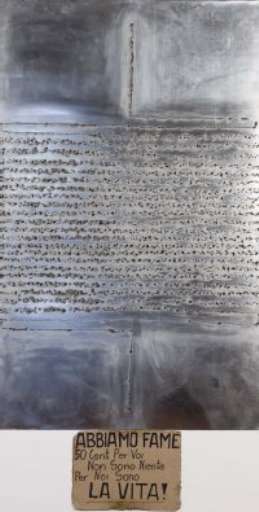 ABBIAMO FAME
50 Cent Per Voi
Non Sono Niente
Per Noi Sono
LA VITA!